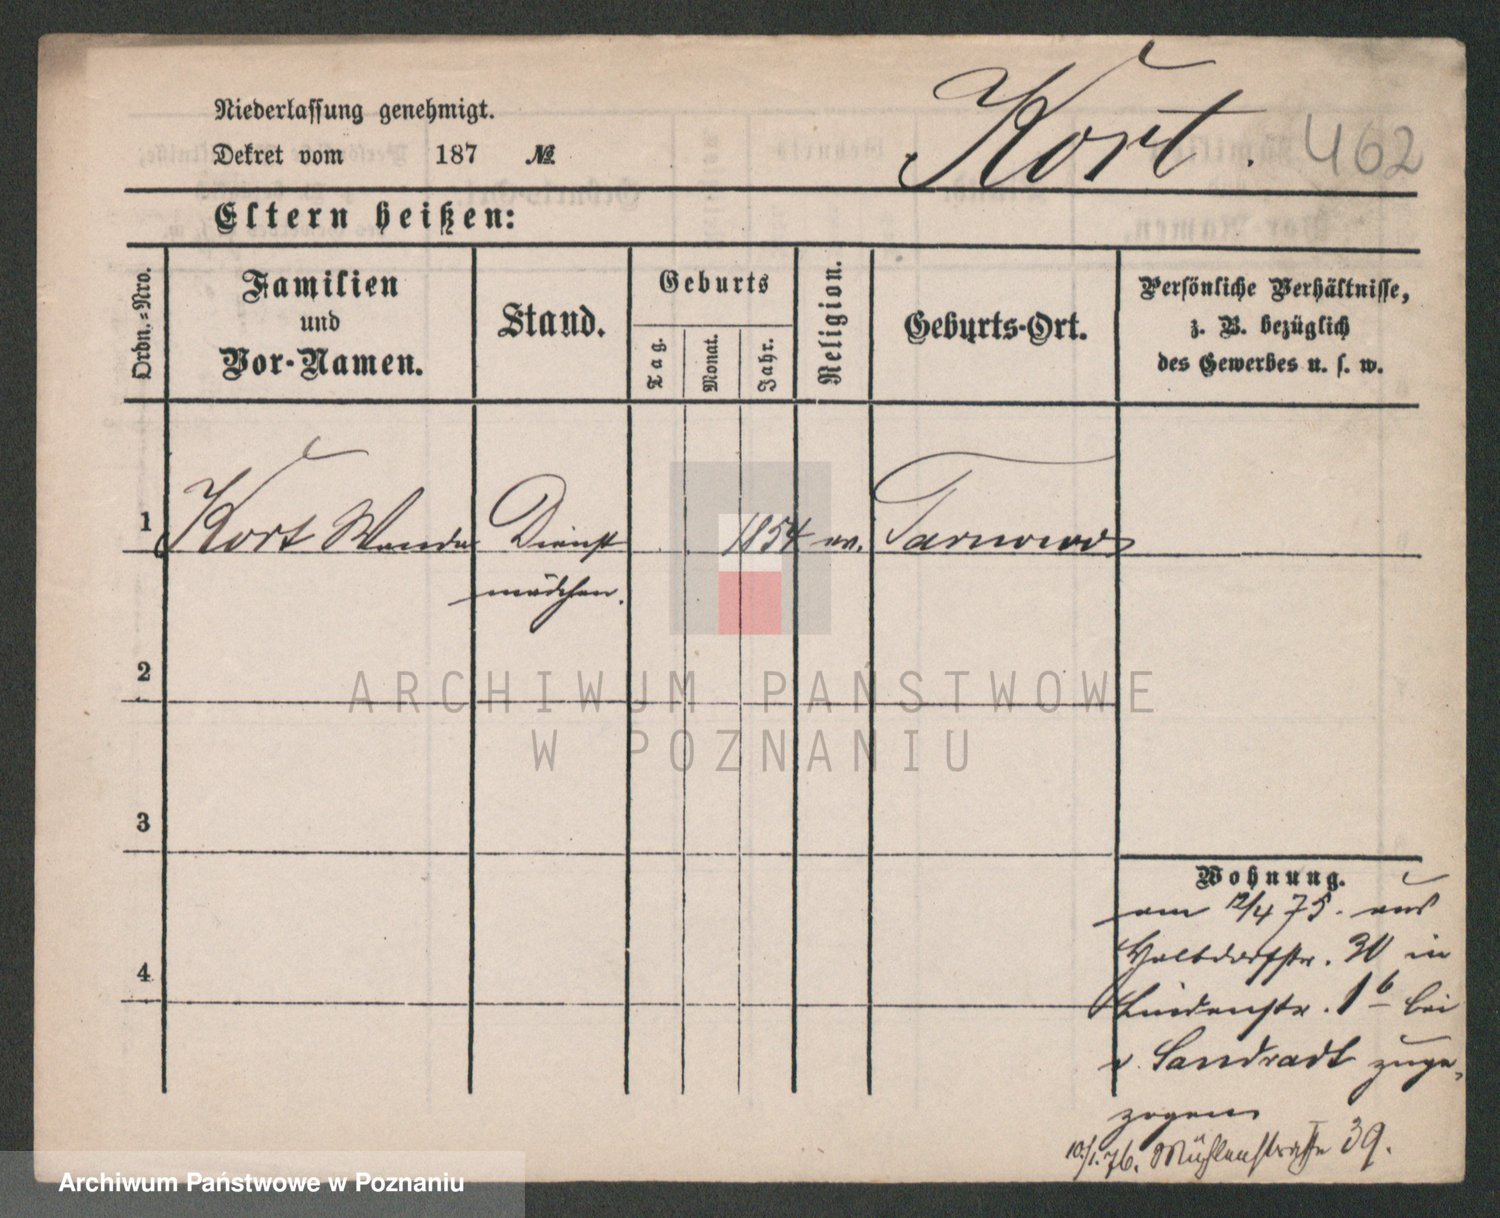 Kort. 462
Niederlassung genehmigt.
Dekret vom 187 №
Eltern heißen:
Ordn.-Nro.
Familien
und
Vor-Namen.
Stand.
Geburts
Tag.
Monat.
Jahr.
Religion.
Geburts-Ort.
Persönliche Verhältnisse,
z. B. bezüglich
des Gewerbes u. s. w.
1 Kort Wanda Dienst 1854 ev. Tarnowo
mädchen.
2
3
4
Wohnung.
am 12/4 75. aus
Halbdorfstr. 30 in
Lindenstr. 1b bei
v. Sandradt zuge-
zogen
10/1.76. Mühlenstraße 39.
ARCHIWUM PAŃSTWOWE
W POZNANIU
Archiwum Państwowe w Poznaniu